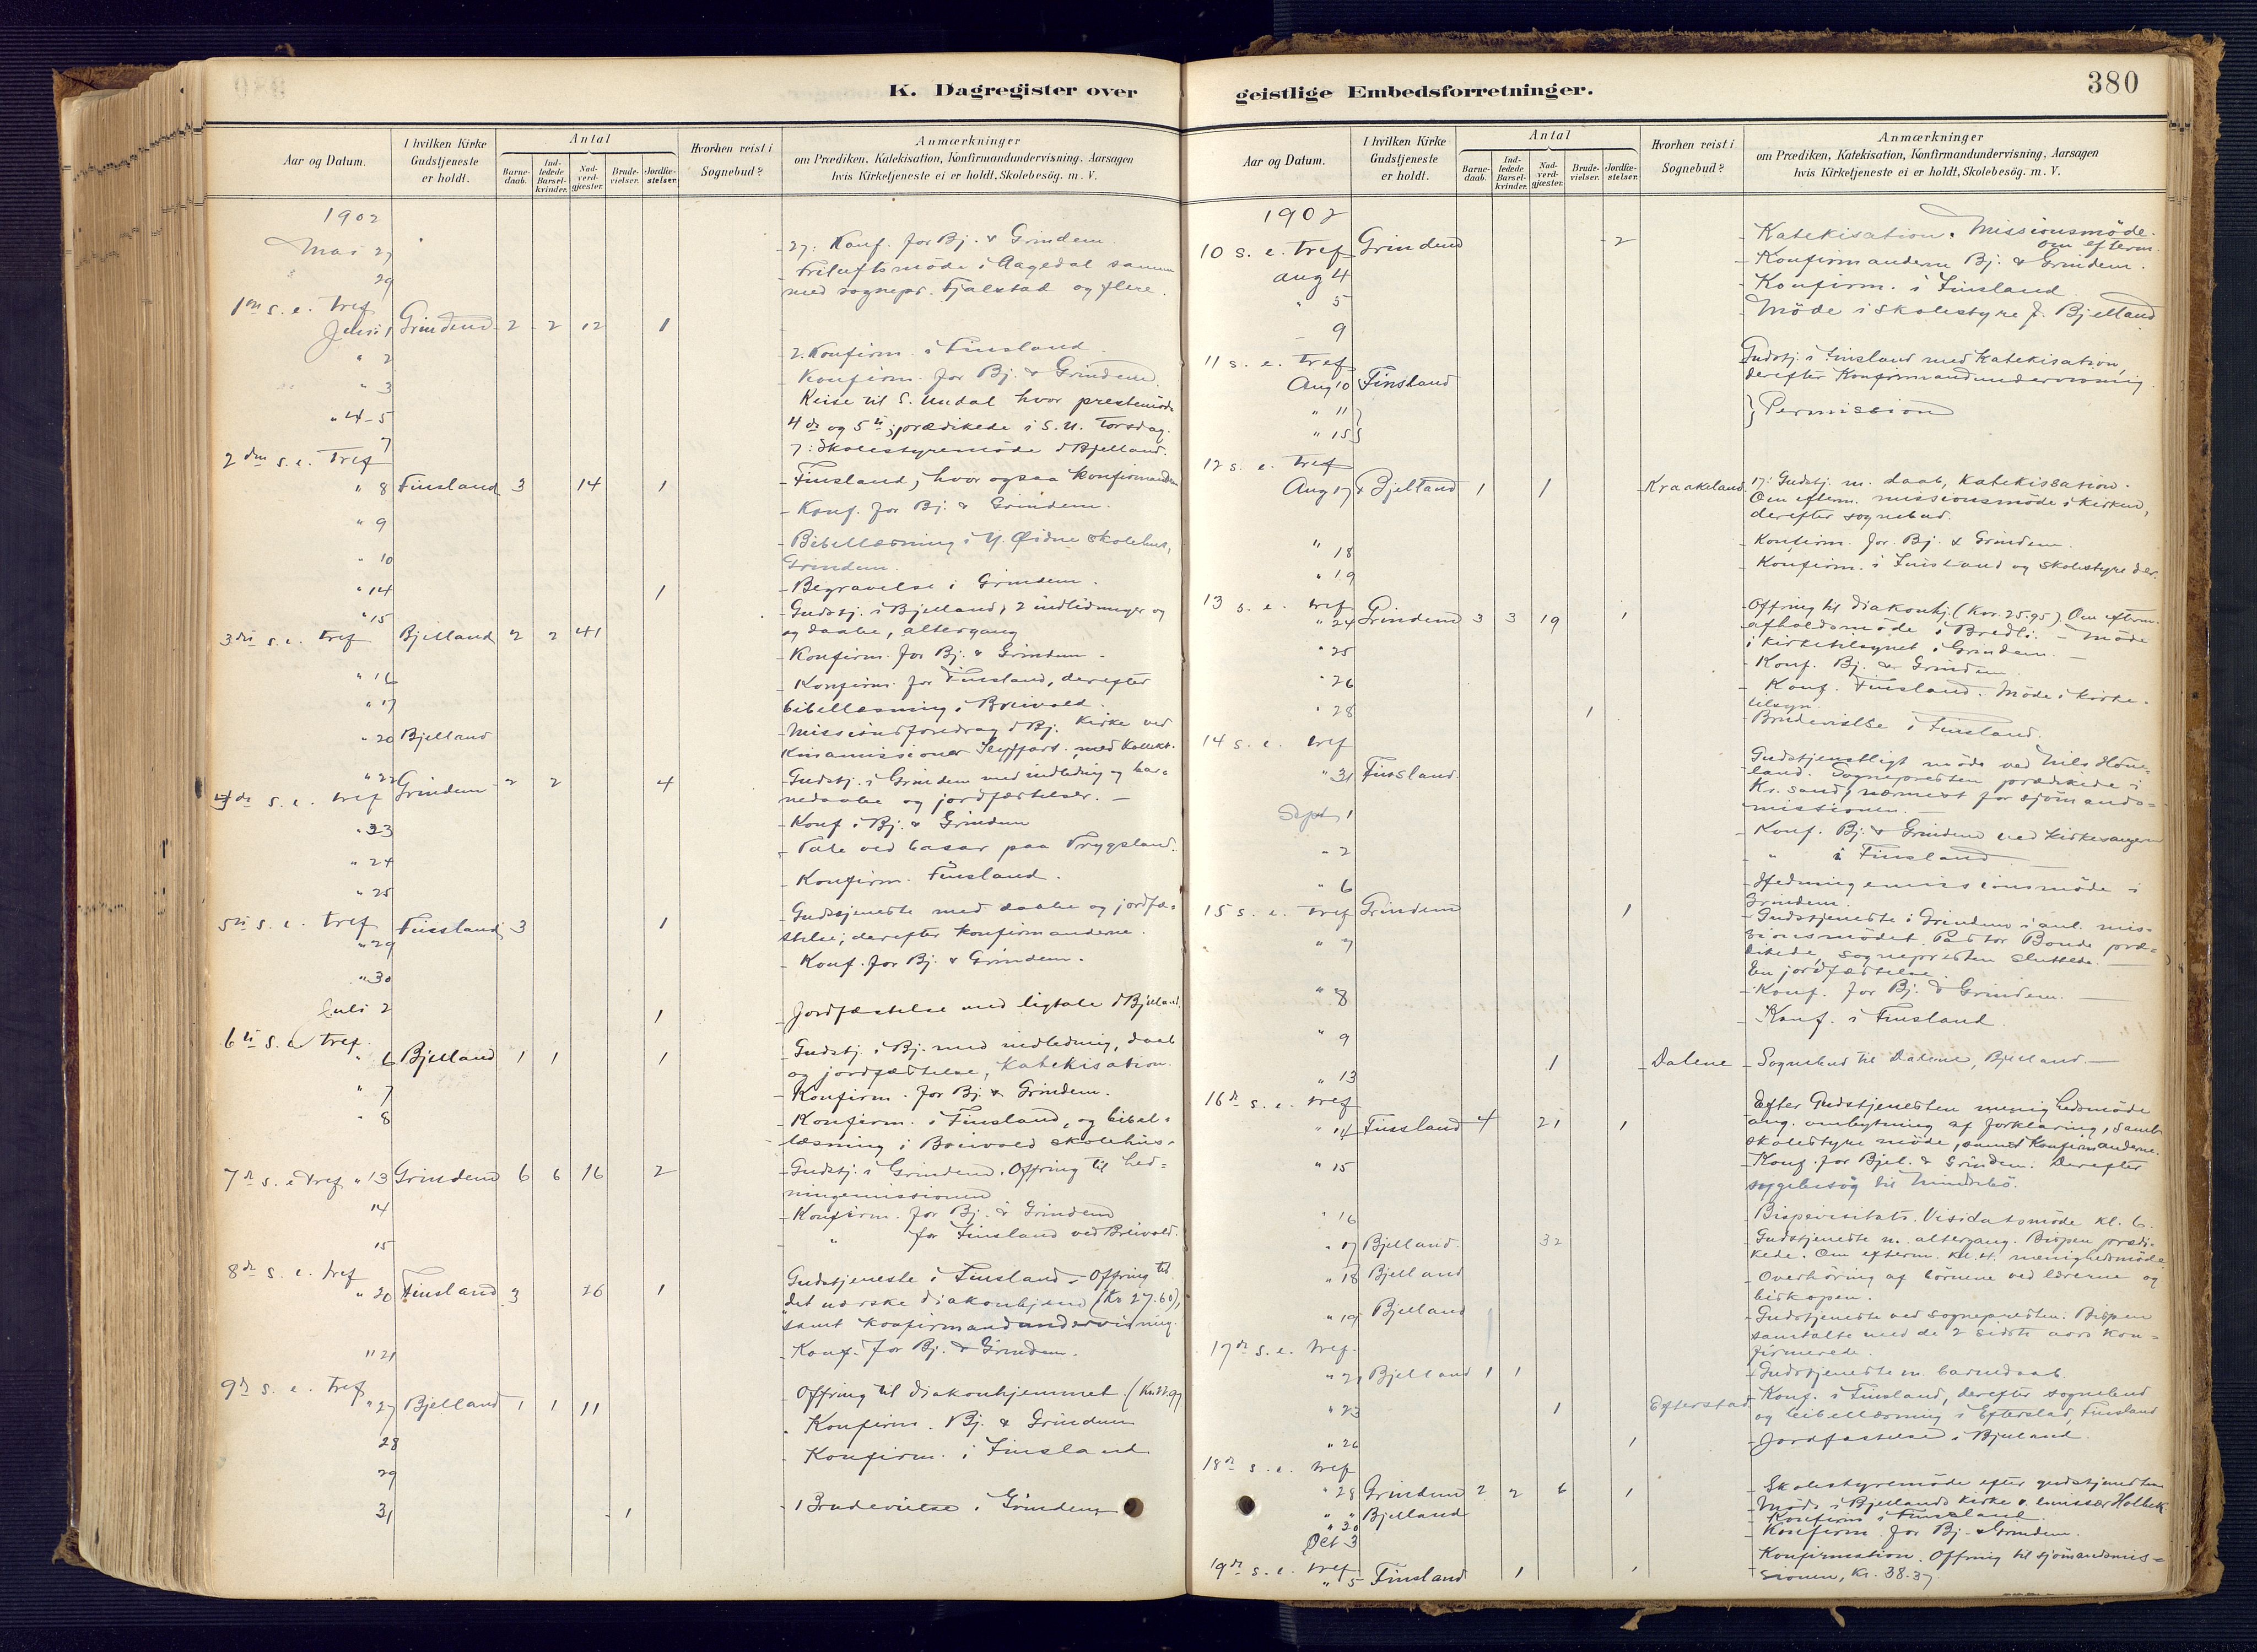 K. Dagregister over
Aar og Datum.
I hvilken Kirke Gudstjeneste er holdt.
Antal
Barne-daab.
Ind-ledede Barsel-kvinder.
Nad-verd-gjæster.
Brude-vielser.
Jordfæ-stelser.
Hvorhen reist i Sognebud?
Anmærkninger
om Prædiken, Katekisation, Konfirmandundervisning, Aarsagen
hvis Kirketjeneste ei er holdt, Skolebesøg. m. V.
1902
Mai 27 - 27: Konf. for Bj. & Grindem.
29 - Friluftsmöde i Aagedal sammen
med sognepr. Fjalstad og flere.
1ste s. e. tref
Juni 1 Grindem 2 2 12 1
" 2 - 2. Konfirm. i Finsland.
" 3 - Konfirm. for Bj. & Grindem.
" 4-5 Reise til S. Undal hvor prestemöde
4de og 5te; prædikede i S. U. Torsdag.
7 7: Skolestyremöde i Bjelland.
2den s. e. tref
" 8 Finsland 3 14 1 - Finsland, hvor ogsaa Konfirmanden
" 9 - Konf. for Bj. & Grindem.
" 10 - Bibellæsning i Y. Øidne skolehus,
Grindem.
" 14 1 - Begravelse i Grindem.
" 15 - Gudstj. i Bjelland, 2 indledninger og
3die s. e. tref Bjelland 2 2 41 og daabe, altergang
" 16 - Konfirm. for Bj. & Grindem.
" 17 - Konfirm. for Finsland, derefter
bibellæsning i Breivold.
" 20 Bjelland - Missionsforedrag i Bj. Kirke ved
Kinamissionær Seyffart, med Kollekt.
" 22 Grindem 2 2 4 - Gudstj. i Grindem med indledning og bar-
4de s. e. tref nedaabe og jordfæstelser. -
" 23 - Konf. i Bj. & Grindem
" 24 - Tale ved basar paa Trygsland.
" 25 - Konfirm. Finsland.
5te s. e. tref Finsland 3 1 - Gudstjeneste med daabe og jordfæ-
" 29 stelse, derefter Konfirmanderne.
" 30 - Konf. for Bj. & Grindem.
Juli 2 1 - Jordfæstelse med ligtale i Bjelland.
6te s. e. tref.
" 6 Bjelland 1 1 1 - Gudstj. i Bj. med indledning, daab
og jordfæstelse, Katekisation.
" 7 - Konfirm. for Bj. & Grindem.
" 8 - Konfirm. i Finsland, og bibel-
læsning i Breivold skolehus.
7de s. e. tref " 13 Grindem 6 6 16 2 - Gudstj. i Grindem. Offring til hed-
ningemissionen
14 - Konfirm. for Bj. & Grindem
15 - " for Finsland ved Breivold.
8de s. e. tref
" 20 Finsland 3 26 1 Gudstjeneste i Finsland. Offring til
det norske diakonhjem (Kr 27.60),
samt Konfirmandundervisning.
" 21 - Konf. for Bj. & Grindem.
9de s. e. tref
" 27 Bjelland 1 1 11 Offring til diakonhjemmet. (Kr.
28 - Konfirm. Bj. & Grindem
29 Konfirm. i Finsland
31 1 - 1 Brudevielse i Grindem
geistlige Embedsforretninger.
380
Aar og Datum.
I hvilken Kirke Gudstjeneste er holdt.
Antal
Barne-daab.
Ind-ledede Barsel-kvinder.
Nad-verd-gjæster.
Brude-vielser.
Jordfæ-stelser.
Hvorhen reist i Sognebud?
Anmærkninger
om Prædiken, Katekisation, Konfirmandundervisning, Aarsagen
hvis Kirketjeneste ei er holdt, Skolebesög. m. V.
1902
10 s. e. tref Grindem 2 - Katekisation. Missionsmöde
om efterm.
aug 4 - Konfirmanderne Bj. & Grindem.
" 5 - Konfirm. i Finsland
9 - Möde i skolestyre f. Bjelland
11 s. e. tref
Aug 10 Finsland Gudstj. i Finsland med Katekisation,
derefter Konfirmandundervisning.
" 11 } Permission
" 15
12 s. e. tref
Aug 17 Bjelland 1 1 Kraakeland 17: Gudstj. m. daab, Katekisation.
Om efterm. missionsmöde i kirken,
derefter sognebud.
" 18 - Konfirm. for Bj. & Grindem.
" 19 - Konfirm. i Finsland og skolestyre der.
13 s. e. tref
" 24 Grindem 3 3 19 1 - Offring til diakonhj. (Kr. 25.95) Om efterm.
afholdsmöde i Bredli. - Möde
i kirketilsynet i Grindem. -
" 25 - Konf. Bj. & Grindem.
" 26 - Konf. Finsland. Möde i kirke-
tilsyn.
" 28 1 - Brudevielse i Finsland.
14 s. e. tref
" 31 Finsland. Gudstjenstligt möde ved Nils Höne-
land. Sognepresten prædikede i
Kr. sand, nærmest for sjömands-
missionen.
Sept 1 - Konf. Bj. & Grindem ved kirkesangeren
" 2 - " i Finsland
" 6 - Hedningemissionsmöde i
Grindem.
15 s. e. tref Grindem 1 - Gudstjeneste i Grindem i anl. mis-
" 7 sionsmödet. Pastor Bonde præ-
dikede, sognepresten sluttede. -
En jordfæstelse.
" 8 - Konf. for Bj. & Grindem. -
" 9 - Konf. i Finsland.
" 13 1 Dalene - Sognebud til Dalene, Bjelland. -
16de s. e. tref
" 14 Finsland 4 21 1 Efter Gudstjenesten menighedsmöde
ang. ombytning af forklaring, samt
skolestyremöde, samt Konfirmanderne.
" 15 - Konf. for Bjel. & Grindem. Derefter
sygebesög til
" 16 - Bispevisitats. Visitatsmöde kl. 6.
" 17 Bjelland 32 - Gudstjeneste m. altergang. Bispen prædi-
kede. Om efterm. kl. 4. menighedsmöde
" 18 Bjelland - Overhöring af börnene ved lærerne og
biskopen.
" 19 Bjelland - Gudstjeneste ved sognepresten. Bispen
samtalte med de 2 sidste aars kon-
firmerede.
17de s. e. tref.
" 21 Bjelland 1 1 - Gudstjeneste m. barnedaab.
" 23 1 Efterstad - Konf. i Finsland, derefter sognebud
og bibellæsning i Efterstad, Finsland
" 26 1 - Jordfæstelse i Bjelland.
18de s. e. tref
" 28 Grindem 2 2 6 1 - Skolestyremöde efter gudstjenesten
" " Bjelland - Möde i Bjellands kirke v. emissær Holbek
" 30 - Konfirm i Finsland
Oct 3 - Konfirm. for Bj. & Grindem.
19de s. e. tref
" 5 Finsland 1 1 Konfirmation. Offring til sjömandsmis-
sionen, Kr. 38.37.